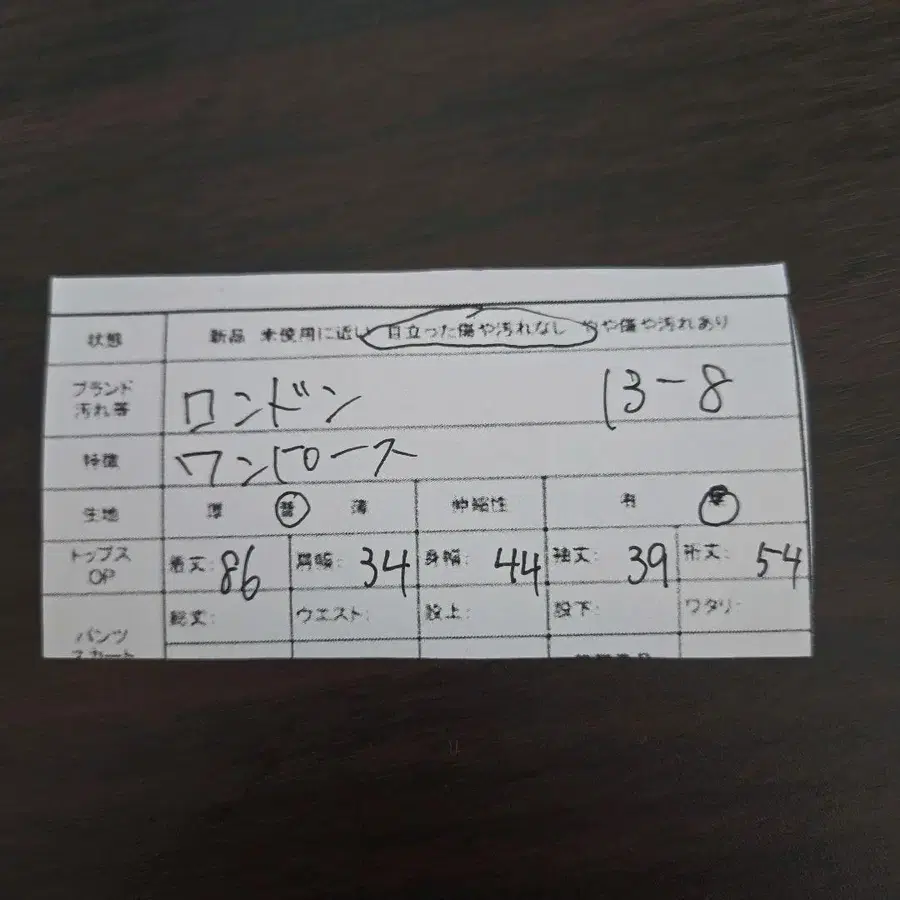 状態 新品 未使用に近い 目立った傷や汚れなし やや傷や汚れあり
ブランド 汚れ等 ロンドン 13-8
特徴 ワンピース
生地 厚 普 薄 伸縮性 有 無
トップス OP 着丈:86 肩幅:34 身幅:44 袖丈:39 裄丈:54
パンツ スカート 総丈: ウエスト: 股上: 股下: ワタリ: